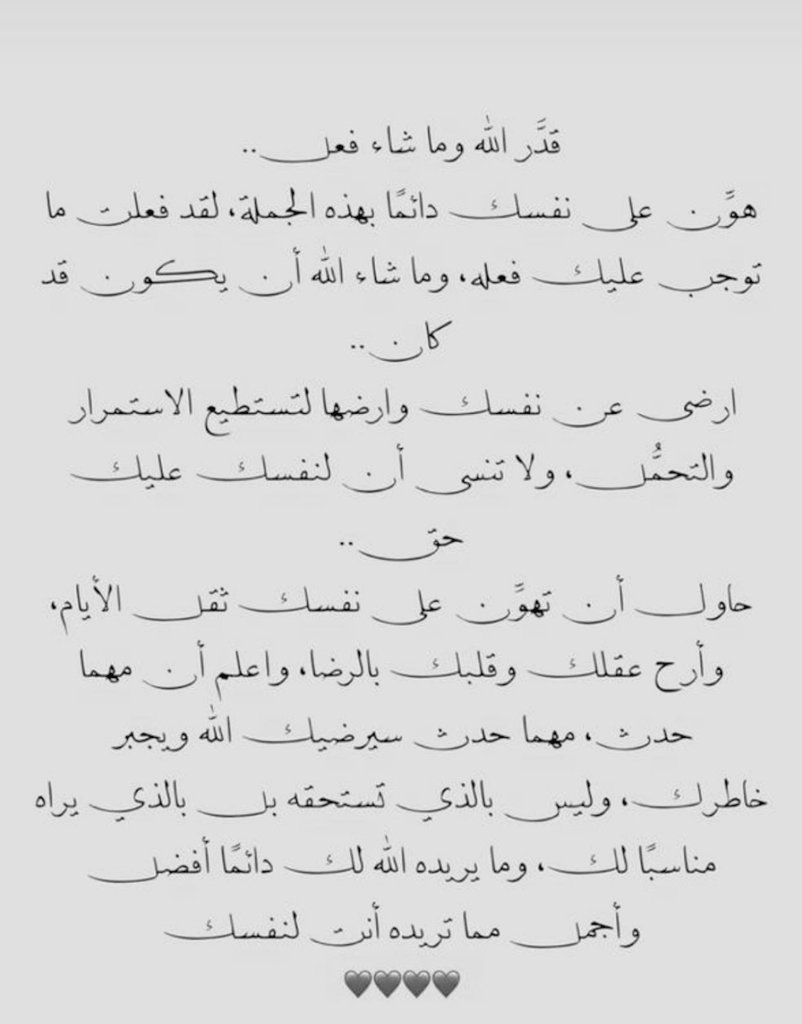 قدَّر الله وما شاء فعل..
هوِّن على نفسك دائمًا بهذه الجملة، لقد فعلت ما
توجب عليك فعله، وما شاء الله أن يكون قد
كان..
ارضى عن نفسك وارضها لتستطيع الاستمرار
والتحمُّل، ولا تنسى أن لنفسك عليك
حق..
حاول أن تهوِّن على نفسك ثقل الأيام،
وأرح عقلك وقلبك بالرضا، واعلم أن مهما
حدث، مهما حدث سيرضيك الله ويجبر
خاطرك، وليس بالذي تستحقه بل بالذي يراه
مناسبًا لك، وما يريده الله لك دائمًا أفضل
وأجمل مما تريده أنت لنفسك
🖤🖤🖤🖤